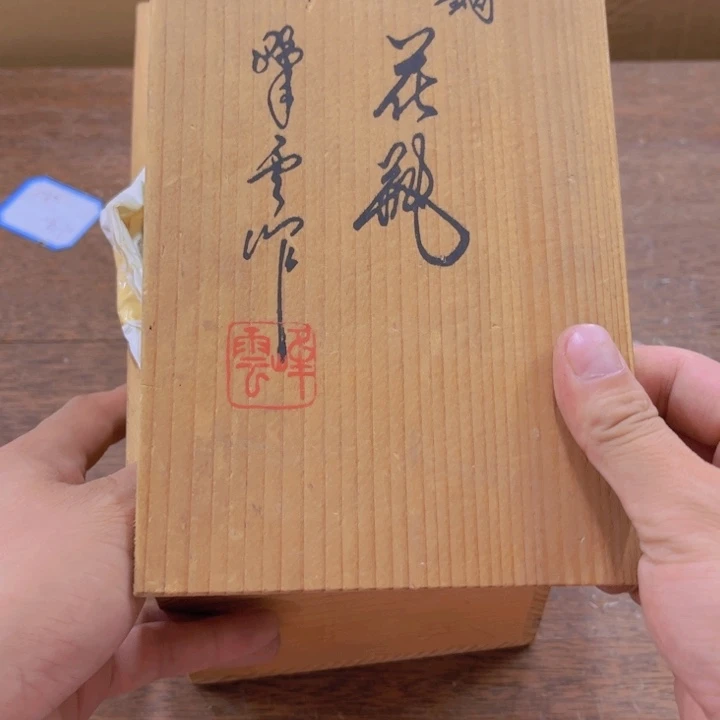 銅花瓶
峰雲作
峰雲